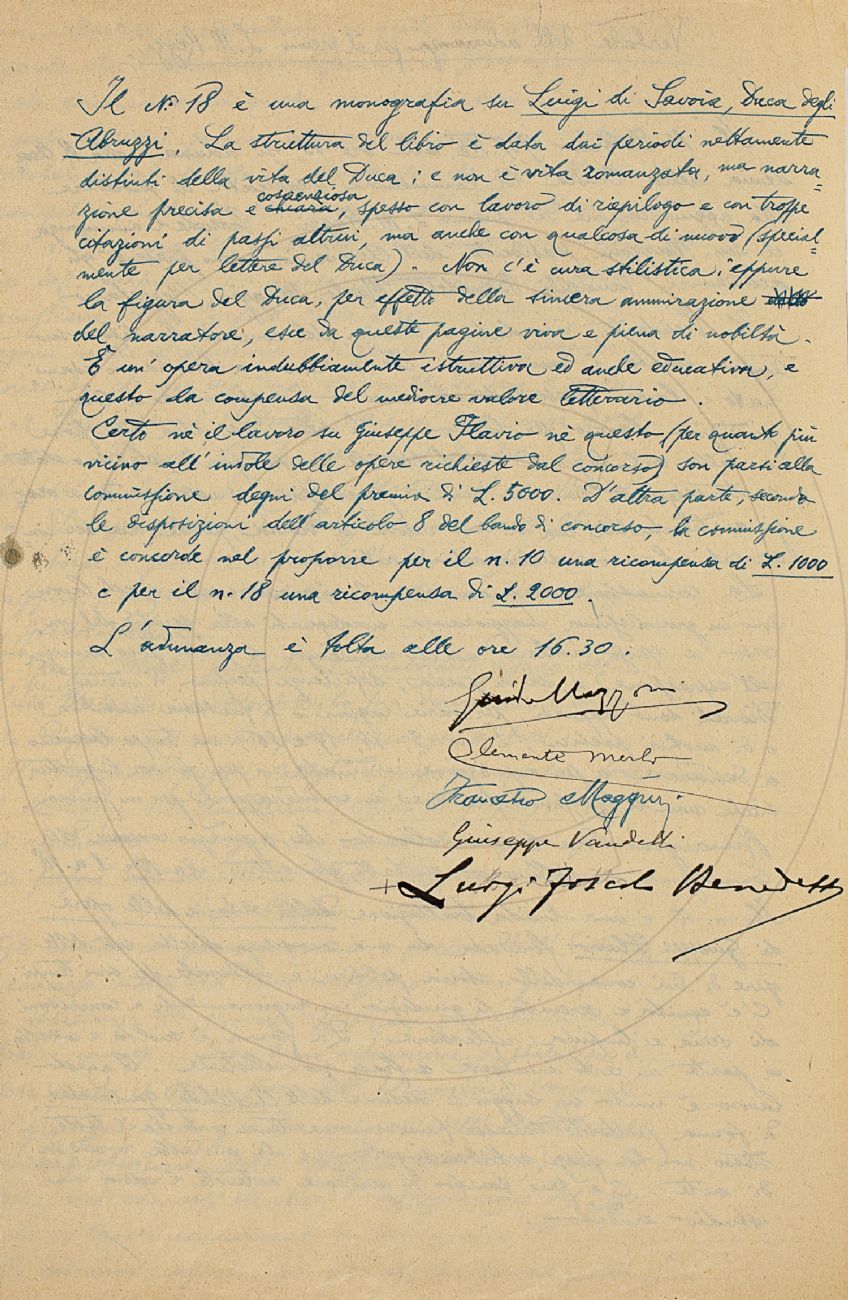 Il Nº 18 è una monografia su Luigi di Savoia, Duca degli
Abruzzi. La struttura del libro è data dai periodi nettamente
distinti della vita del Duca; e non è vita romanzata, ma narra=
coscenziosa
zione precisa e chiara, spesso con lavoro di riepilogo e con troppe
citazioni di passi altrui, ma anche con qualcosa di nuovo (special=
mente per lettere del Duca). Non c'è cura stilistica; eppure
la figura del Duca, per effetto della sincera ammirazione
del narratore, esce da queste pagine viva e piena di nobiltà.
È un'opera indubbiamente istruttiva ed anche educativa, e
questo la compensa del mediocre valore letterario.
Certo nè il lavoro su Giuseppe Flavio nè questo (per quanto più
vicino all'indole delle opere richieste dal concorso) son parsi alla
commissione degni del premio di L. 5000. D'altra parte, secondo
le disposizioni dell'articolo 8 del bando di concorso, la commissione
è concorde nel proporre per il n. 10 una ricompensa di L. 1000
e per il n. 18 una ricompensa di L. 2000.
L'adunanza è tolta alle ore 16.30.
Guido Mazzoni
Clemente Merlo
Francesco Maggini
Giuseppe Vandelli
+ Luigi Foscolo Benedetto